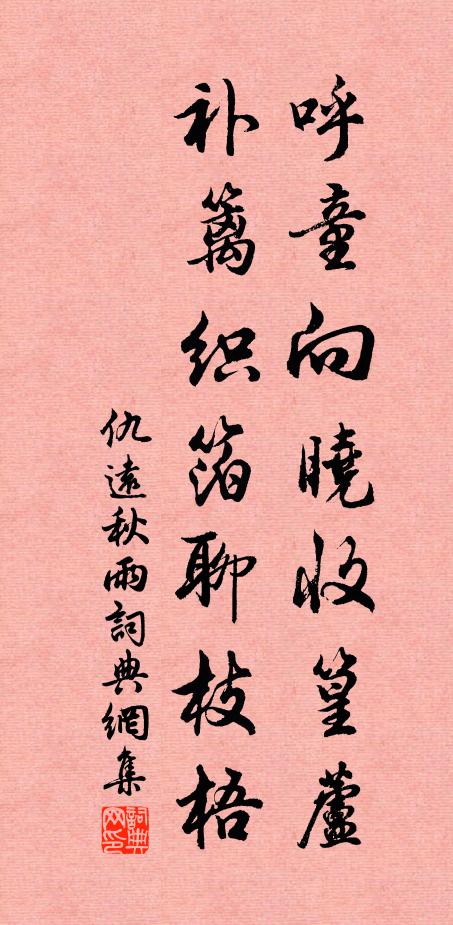 呼童向曉收篁蘆
补篱织箔聊枝梧
仇遠秋雨詞典網集
詞典网印